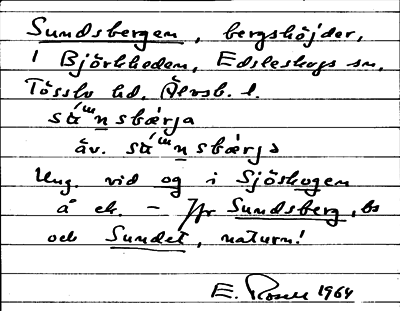 Sundsbergen, bergshöjder,
i Björkheden, Edsleskogs sn,
Tössbo hd, Älvsb. l.
sú̇nsbærja
äv. sú̇nsbærjɔ
Ung. vid og i Sjöskogen
å ek. – Jfr Sundsberg, bs
och Sundet, naturn!
E. Rosell 1964